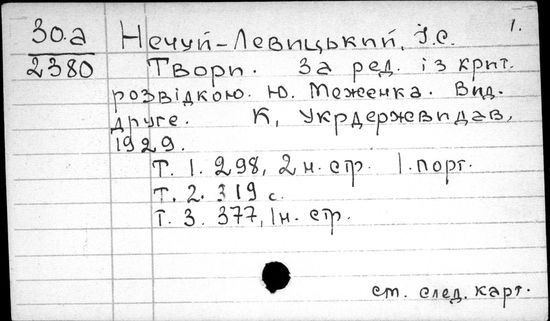 30.а
2380
1.
Нечуй-Левицький, І.С.
Твори. За ред. із крит.
розвідкою. Ю. Меженка. Вид.
друге. К, Укрдержвидав,
1929.
Т. 1. 298, 2 н. стр. 1. порт.
Т. 2. 319 с.
Т. 3. 377, 1н. стр.
ст. след. карт.